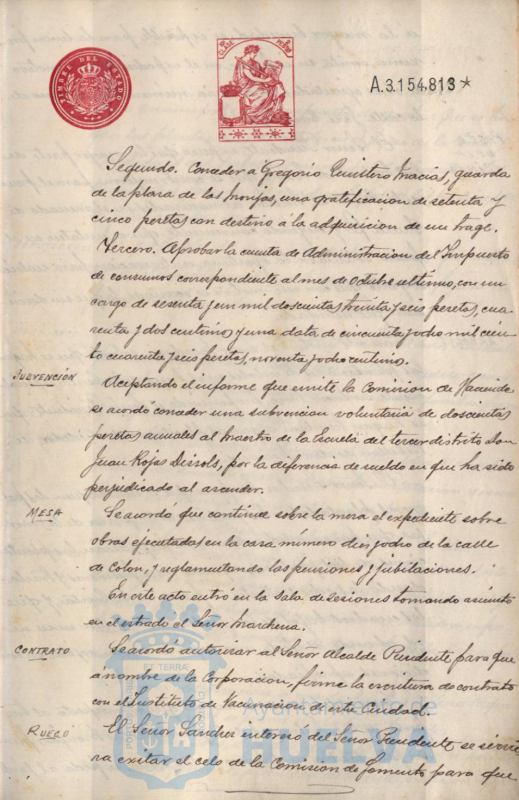 TIMBRE DEL ESTADO
CLASE
PESETA
A.3.154.813*
Segundo. Conceder a Gregorio Quintero Macias, guarda
de la plaza de las Monjas, una gratificacion de setenta y
cinco pesetas con destino á la adquisicion de un trage.
Tercero. Aprobar la cuenta de Administracion del Impuesto
de consumos correspondiente al mes de Octubre ultimo, con un
cargo de sesenta y un mil doscientas treinta y seis pesetas, cua-
renta y dos centimos y una data de cincuenta y ocho mil cien-
to cuarenta y seis pesetas, noventa y ocho centimos.
SUBVENCIÓN
Aceptando el informe que emite la Comision de Hacienda
se acordó conceder una subvencion voluntaria de doscientas
pesetas anuales al maestro de la Escuela del tercer distrito Don
Juan Rojas Dissols, por la diferencia de sueldo en que ha sido
perjudicado al ascender.
MESA
Se acordó que continue sobre la mesa el expediente sobre
obras ejecutadas en la casa número diez y ocho de la calle
de Colon, y reglamentando las pensiones y jubilaciones.
En este acto entró en la sala de sesiones tomando asiento
en el estrado el Señor Marchena.
CONTRATO
Se acordó autorizar al Señor Alcalde Presidente para que
á nombre de la Corporacion, firme la escritura de contrato
con el Instituto de Vacunacion de esta Ciudad.
RUEGO
El Señor Sanchez interesó del Señor Presidente se sirvie-
ra exitar el celo de la Comision de fomento para que
Ayuntamiento de
HUELVA